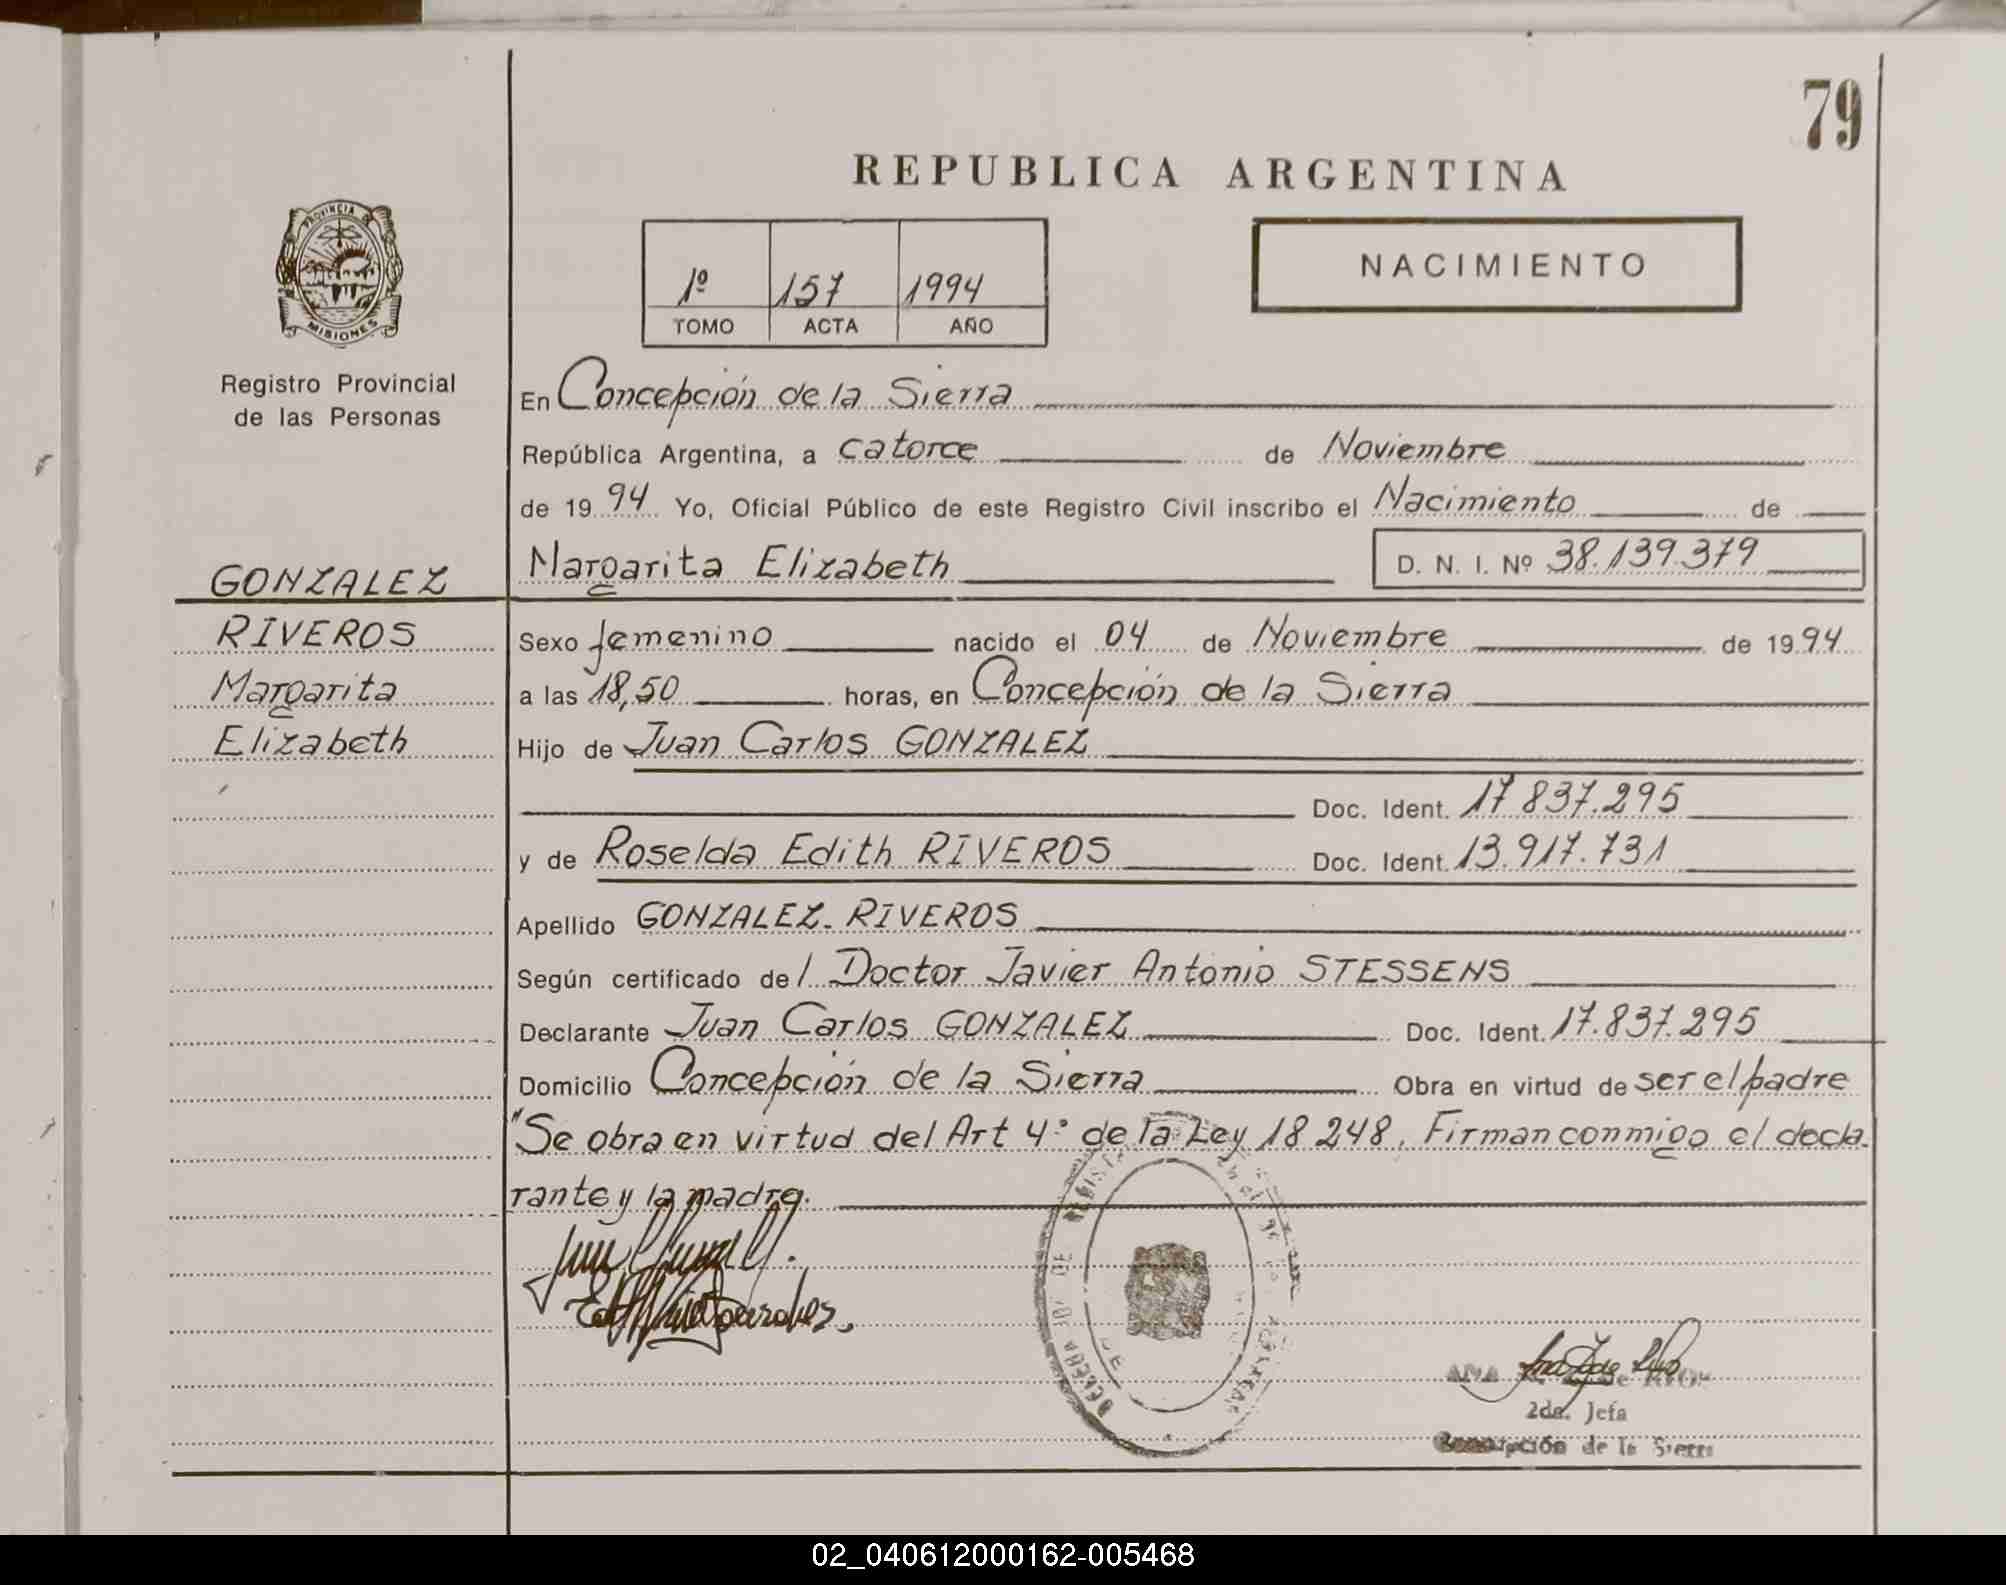 79
REPUBLICA ARGENTINA
PROVINCIA DE
MISIONES
1º 157 1994
TOMO ACTA AÑO
NACIMIENTO
Registro Provincial
de las Personas
En Concepción de la Sierra
República Argentina, a catorce de Noviembre
de 1994 Yo, Oficial Público de este Registro Civil inscribo el Nacimiento de
GONZALEZ Margarita Elizabeth D. N. I. Nº 38.139.379
RIVEROS Sexo femenino nacido el 04 de Noviembre de 1994
Margarita a las 18,50 horas, en Concepción de la Sierra
Elizabeth Hijo de Juan Carlos GONZALEZ
Doc. Ident. 17.837.295
y de Roselda Edith RIVEROS Doc. Ident. 13.917.731
Apellido GONZALEZ. RIVEROS
Según certificado del Doctor Javier Antonio STESSENS
Declarante Juan Carlos GONZALEZ Doc. Ident. 17.837.295
Domicilio Concepción de la Sierra Obra en virtud de ser el padre
"Se obra en virtud del Art 4º de la Ley 18.248. Firman conmigo el decla-
rante y la madre.
ANA de
2da. Jefa
Concepción de la Sierra
02_040612000162-005468